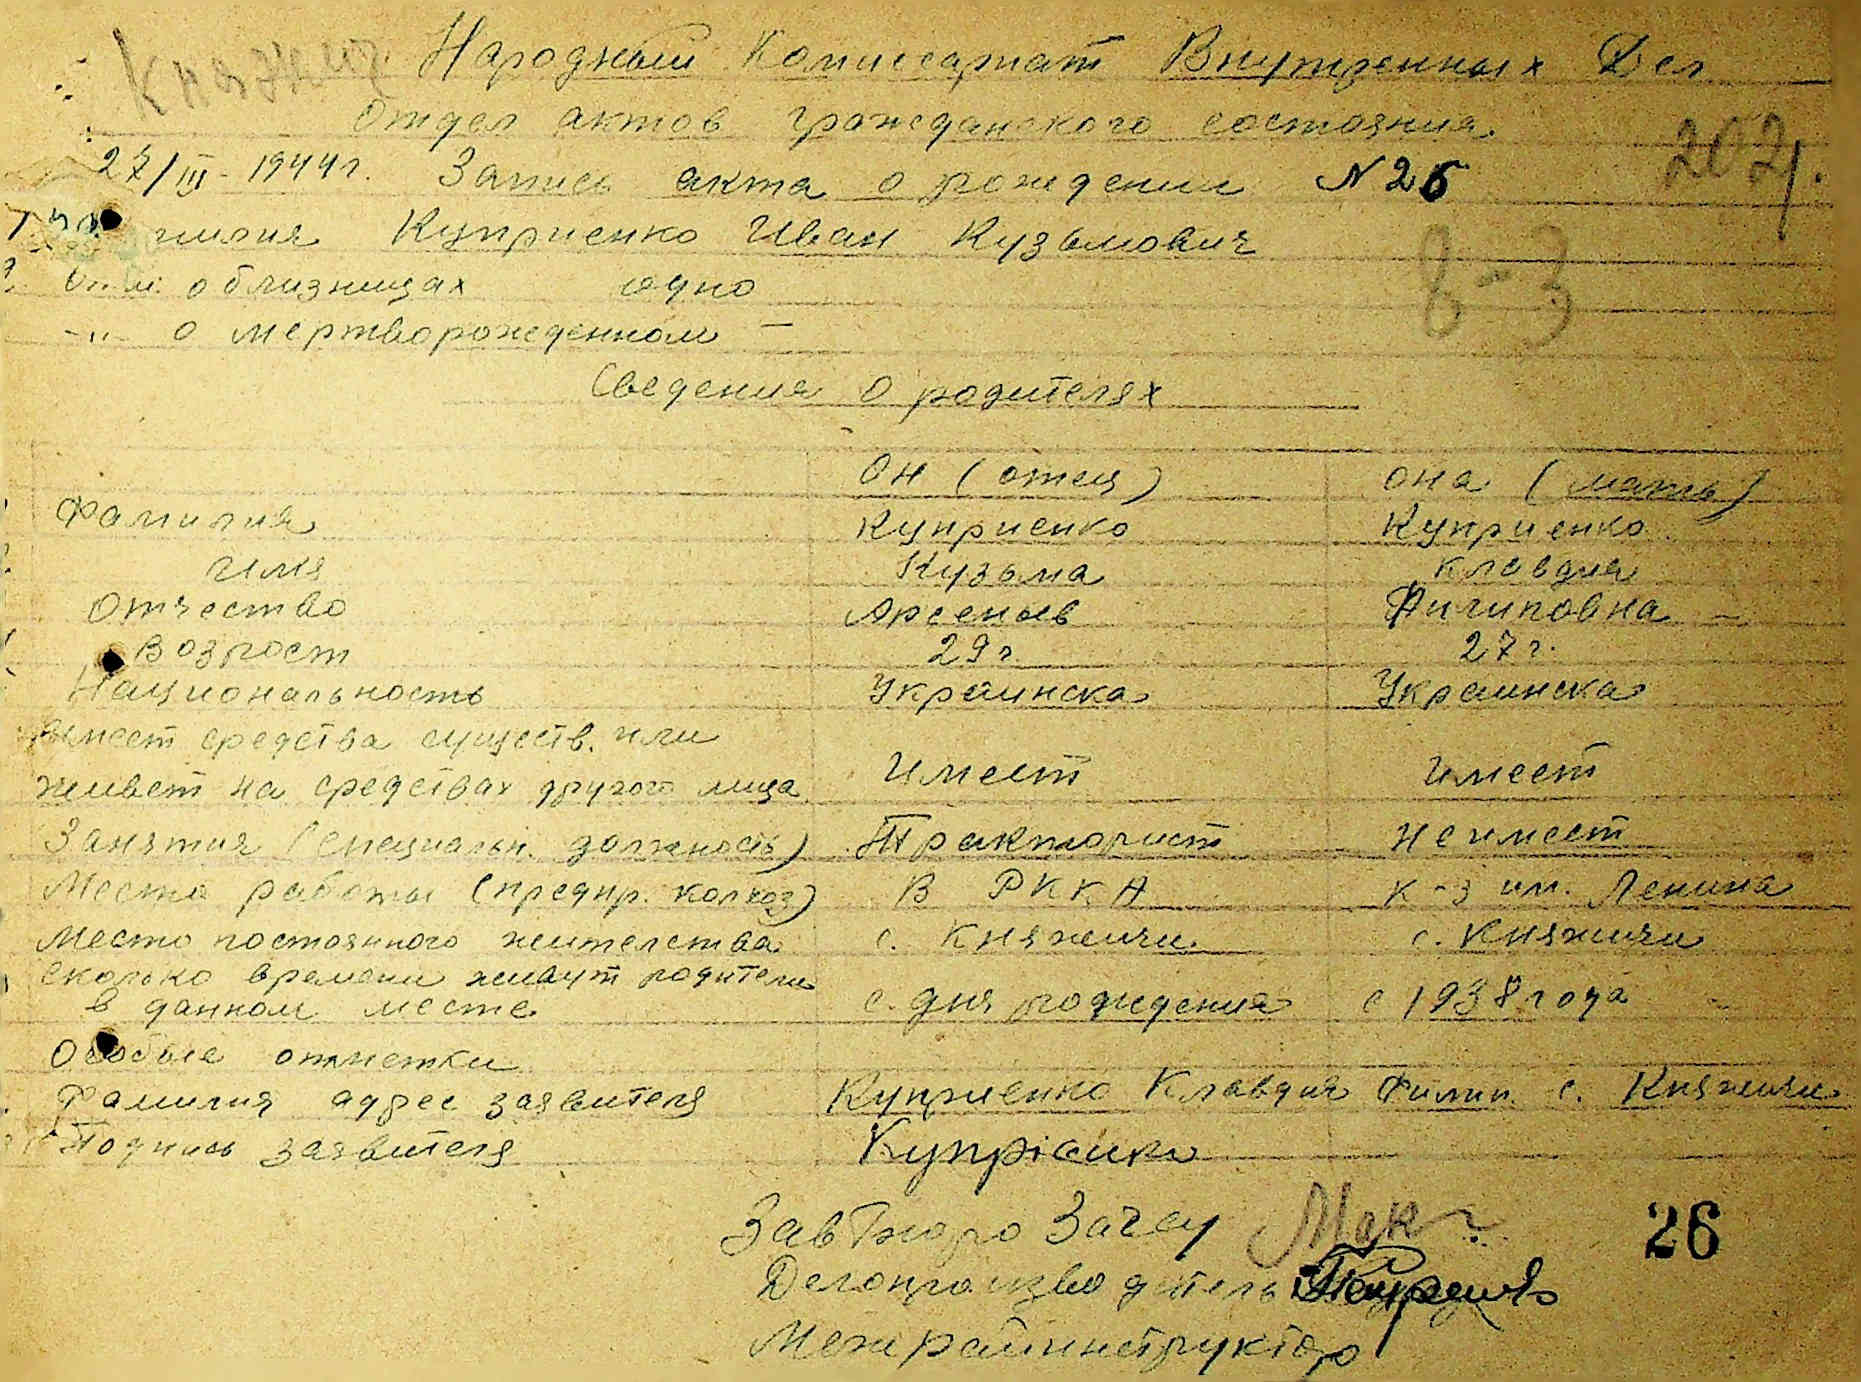 Княжичи
Народный Комиссариат Внутренных Дел
Отдел актов гражданского состояния.
27/III - 1944 г. Запись акта о рождении N 26
202
милия Куприенко Иван Кузьмович
о близницах одно
8-3
-"- о мертворожденном —
Сведения о родителях
Он (отец) Она (мать)
Фамилия Куприенко Куприенко
Имя Кузьма Клавдия
Отчество Арсеньев Филиповна
Возрост 29 г. 27 г.
Национальность Украинска Украинска
имеет средства существ. или
живет на средствах другого лица Имеет Имеет
Занятия (специальн. должность) Тракторист не имеет
Место работы (предпр. колхоз) В РККА к-з им. Ленина
Место постоянного жителства с. Княжичи с. Княжичи
сколько времени живут родители
в данном месте с дня рождения с 1938 года
Особые отметки
Фамилия адрес заявителя Куприенко Клавдия Филип. с. Княжичи
Подпись заявителя Купрієнко
Зав Бюро Загсу
26
Делопроизводитель
Межрайинструктор